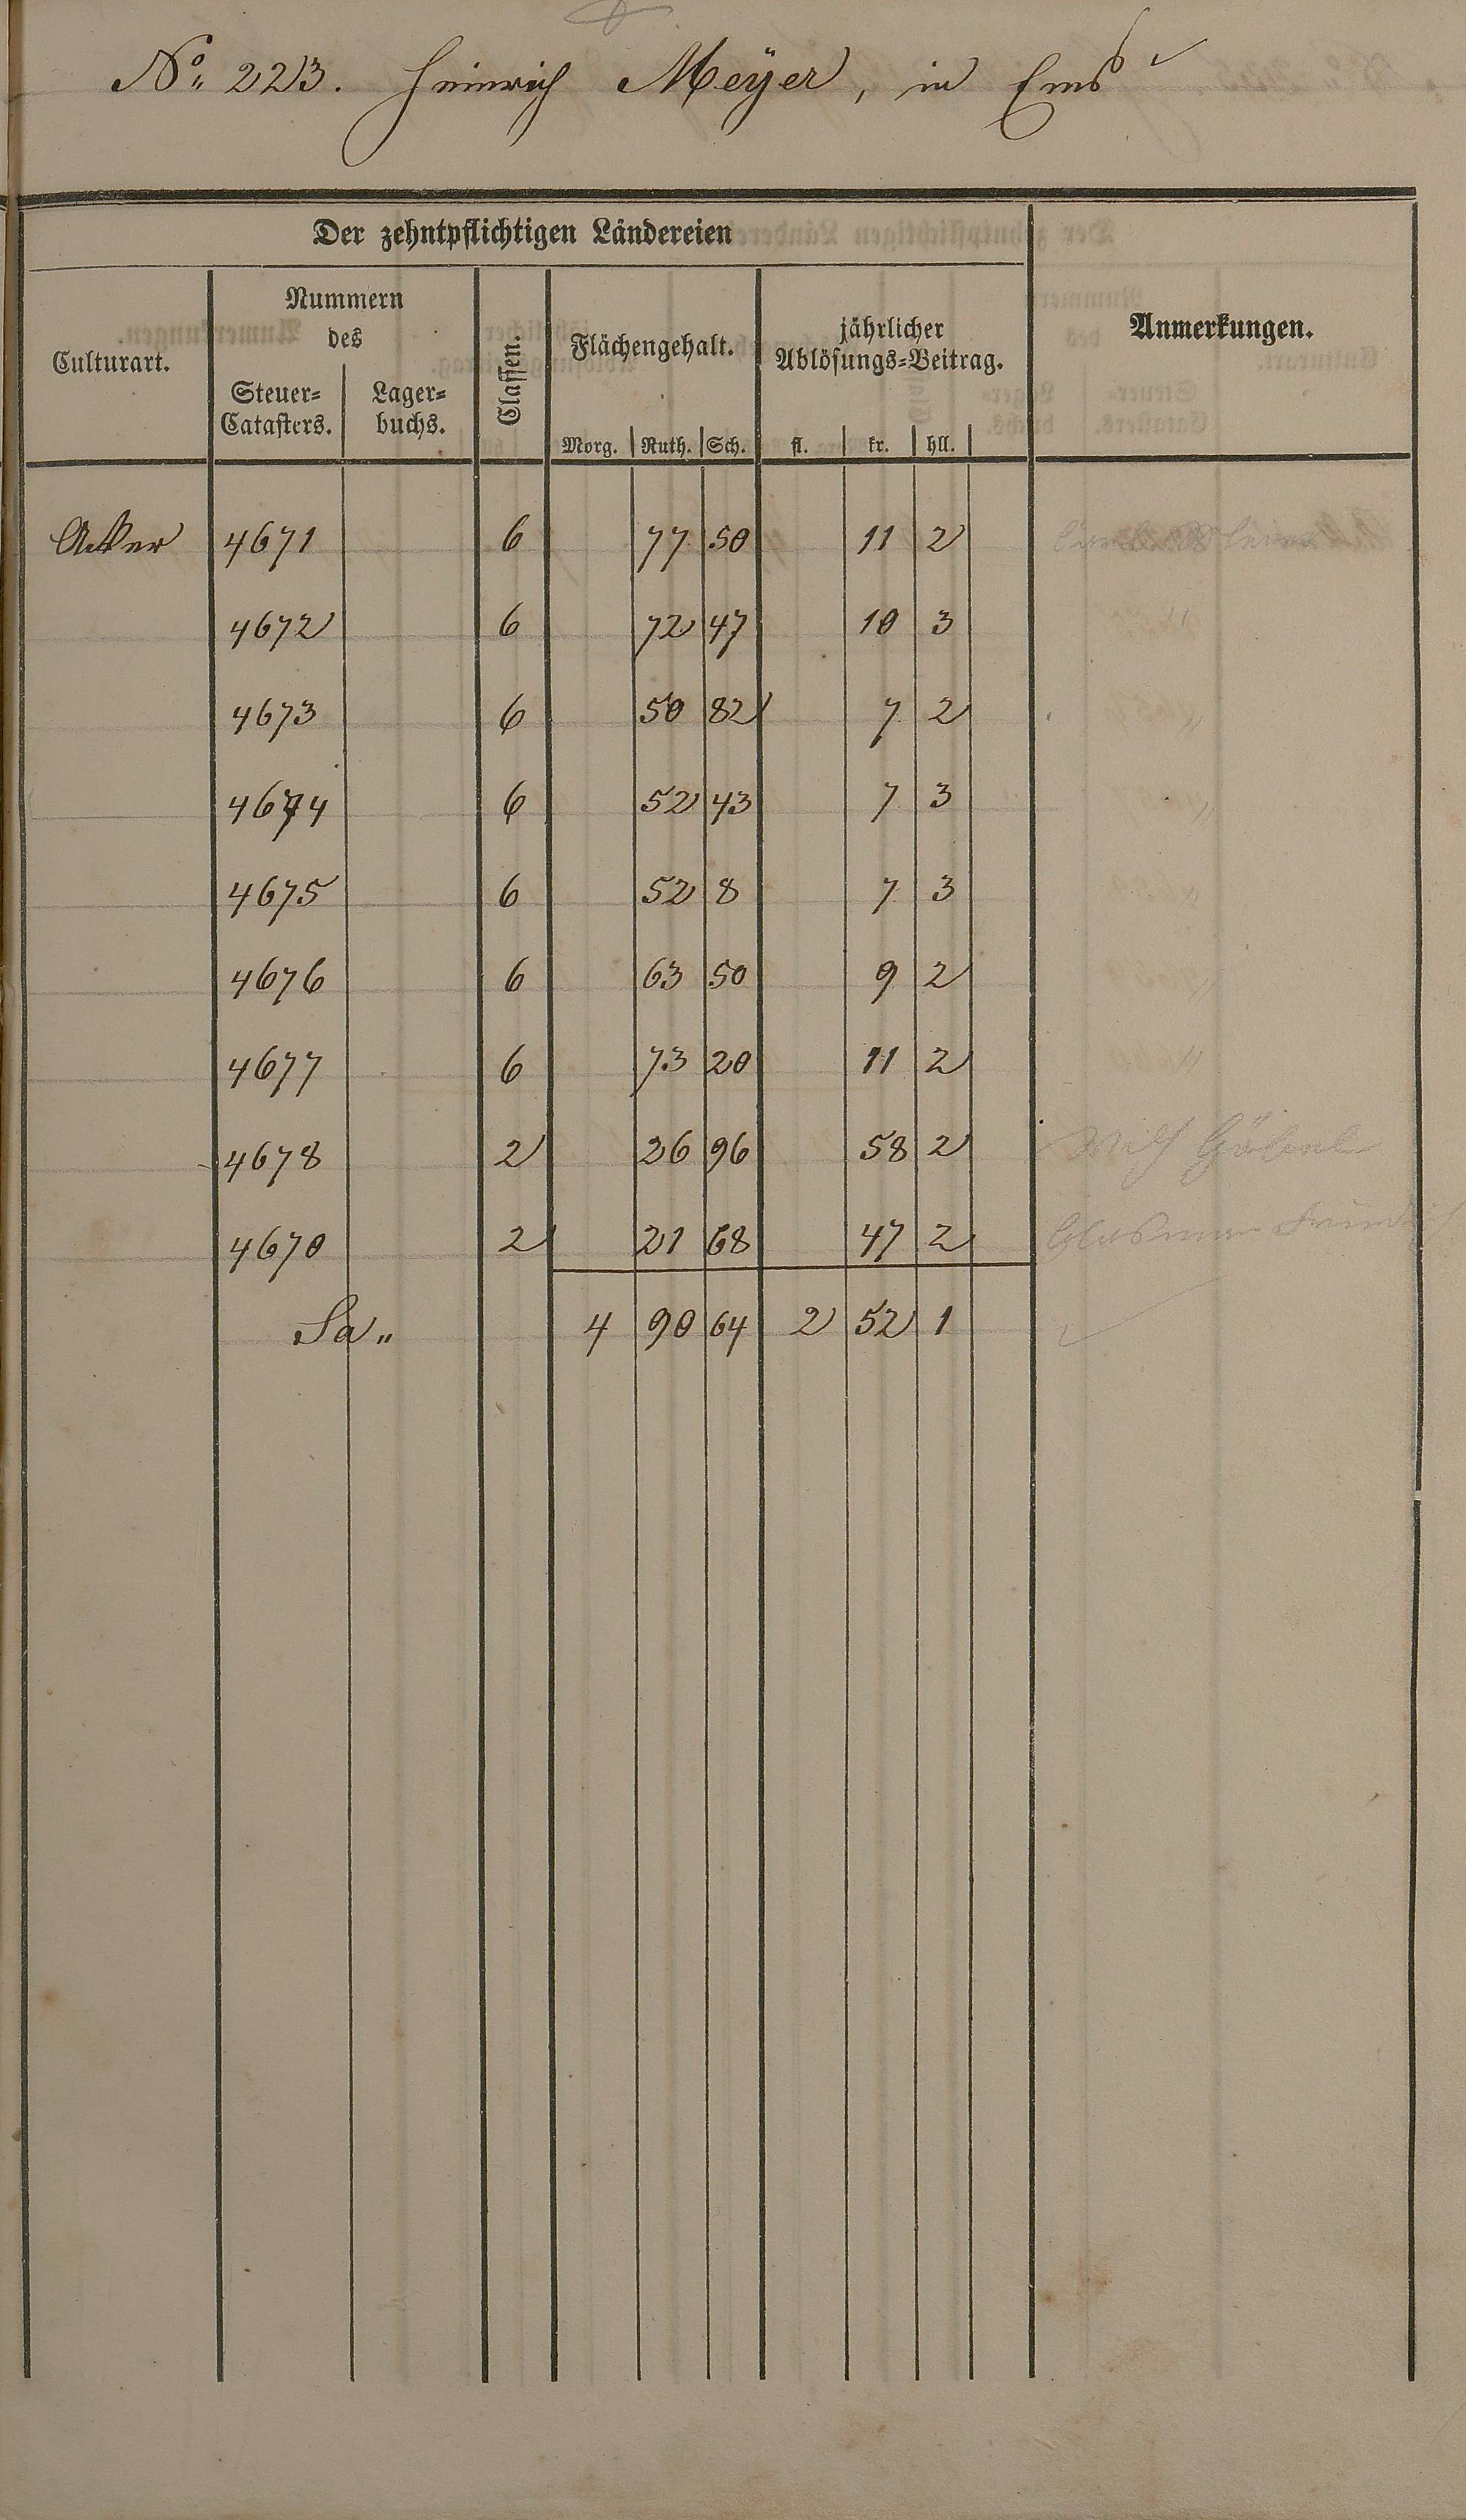 No. 223. Heinrich Meÿer, in Ems
Der zehntpflichtigen Ländereien
Culturart.
Nummern
des
Steuer-
Catasters.
Lager-
buchs.
Classen.
Flächengehalt.
Morg. Ruth. Sch.
jährlicher
Ablösungs-Beitrag.
fl. kr. hll.
Anmerkungen.
Acker 4671 6 77 50 11 2
4672 6 72 47 10 3 "
4673 6 50 82 7 2 "
4674 6 52 43 7 3 "
4675 6 52 8 7 3 "
4676 6 63 50 9 2 "
4677 6 73 20 11 2 "
4678 2 26 96 58 2 Göbel
4670 2 21 68 47 2
Sa" 4 90 64 2 52 1